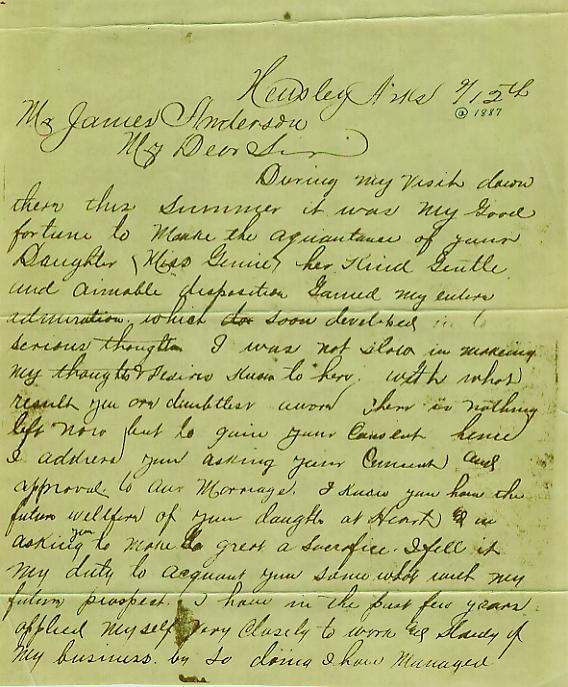 Hensley Arks 9/12th
@ 1887
Mr James Anderson
My Dear Sir
During my visit down
there this summer it was my Good
fortune to Make the aquantance of your
Daughter (Miss Genie) her Kind Gentle
and aimable disposition Gained my entire
admiration which soon developed in to
serious thoughts I was not slow in making
my thoughts & desires Know to her. with what
result you are doubtless aware There is nothing
left now but to gain your Consent hence
I address you asking your Consent and
approval to our Marriage. I Know you have the
future wellfare of your daughter at Heart & in
asking you to make so great a Sacrifice. I fell it
My duty to acquant you some what with my
future prospect. I have in the past few years
applied myself very closely to work and Study of
My business. by so doing I have Managed